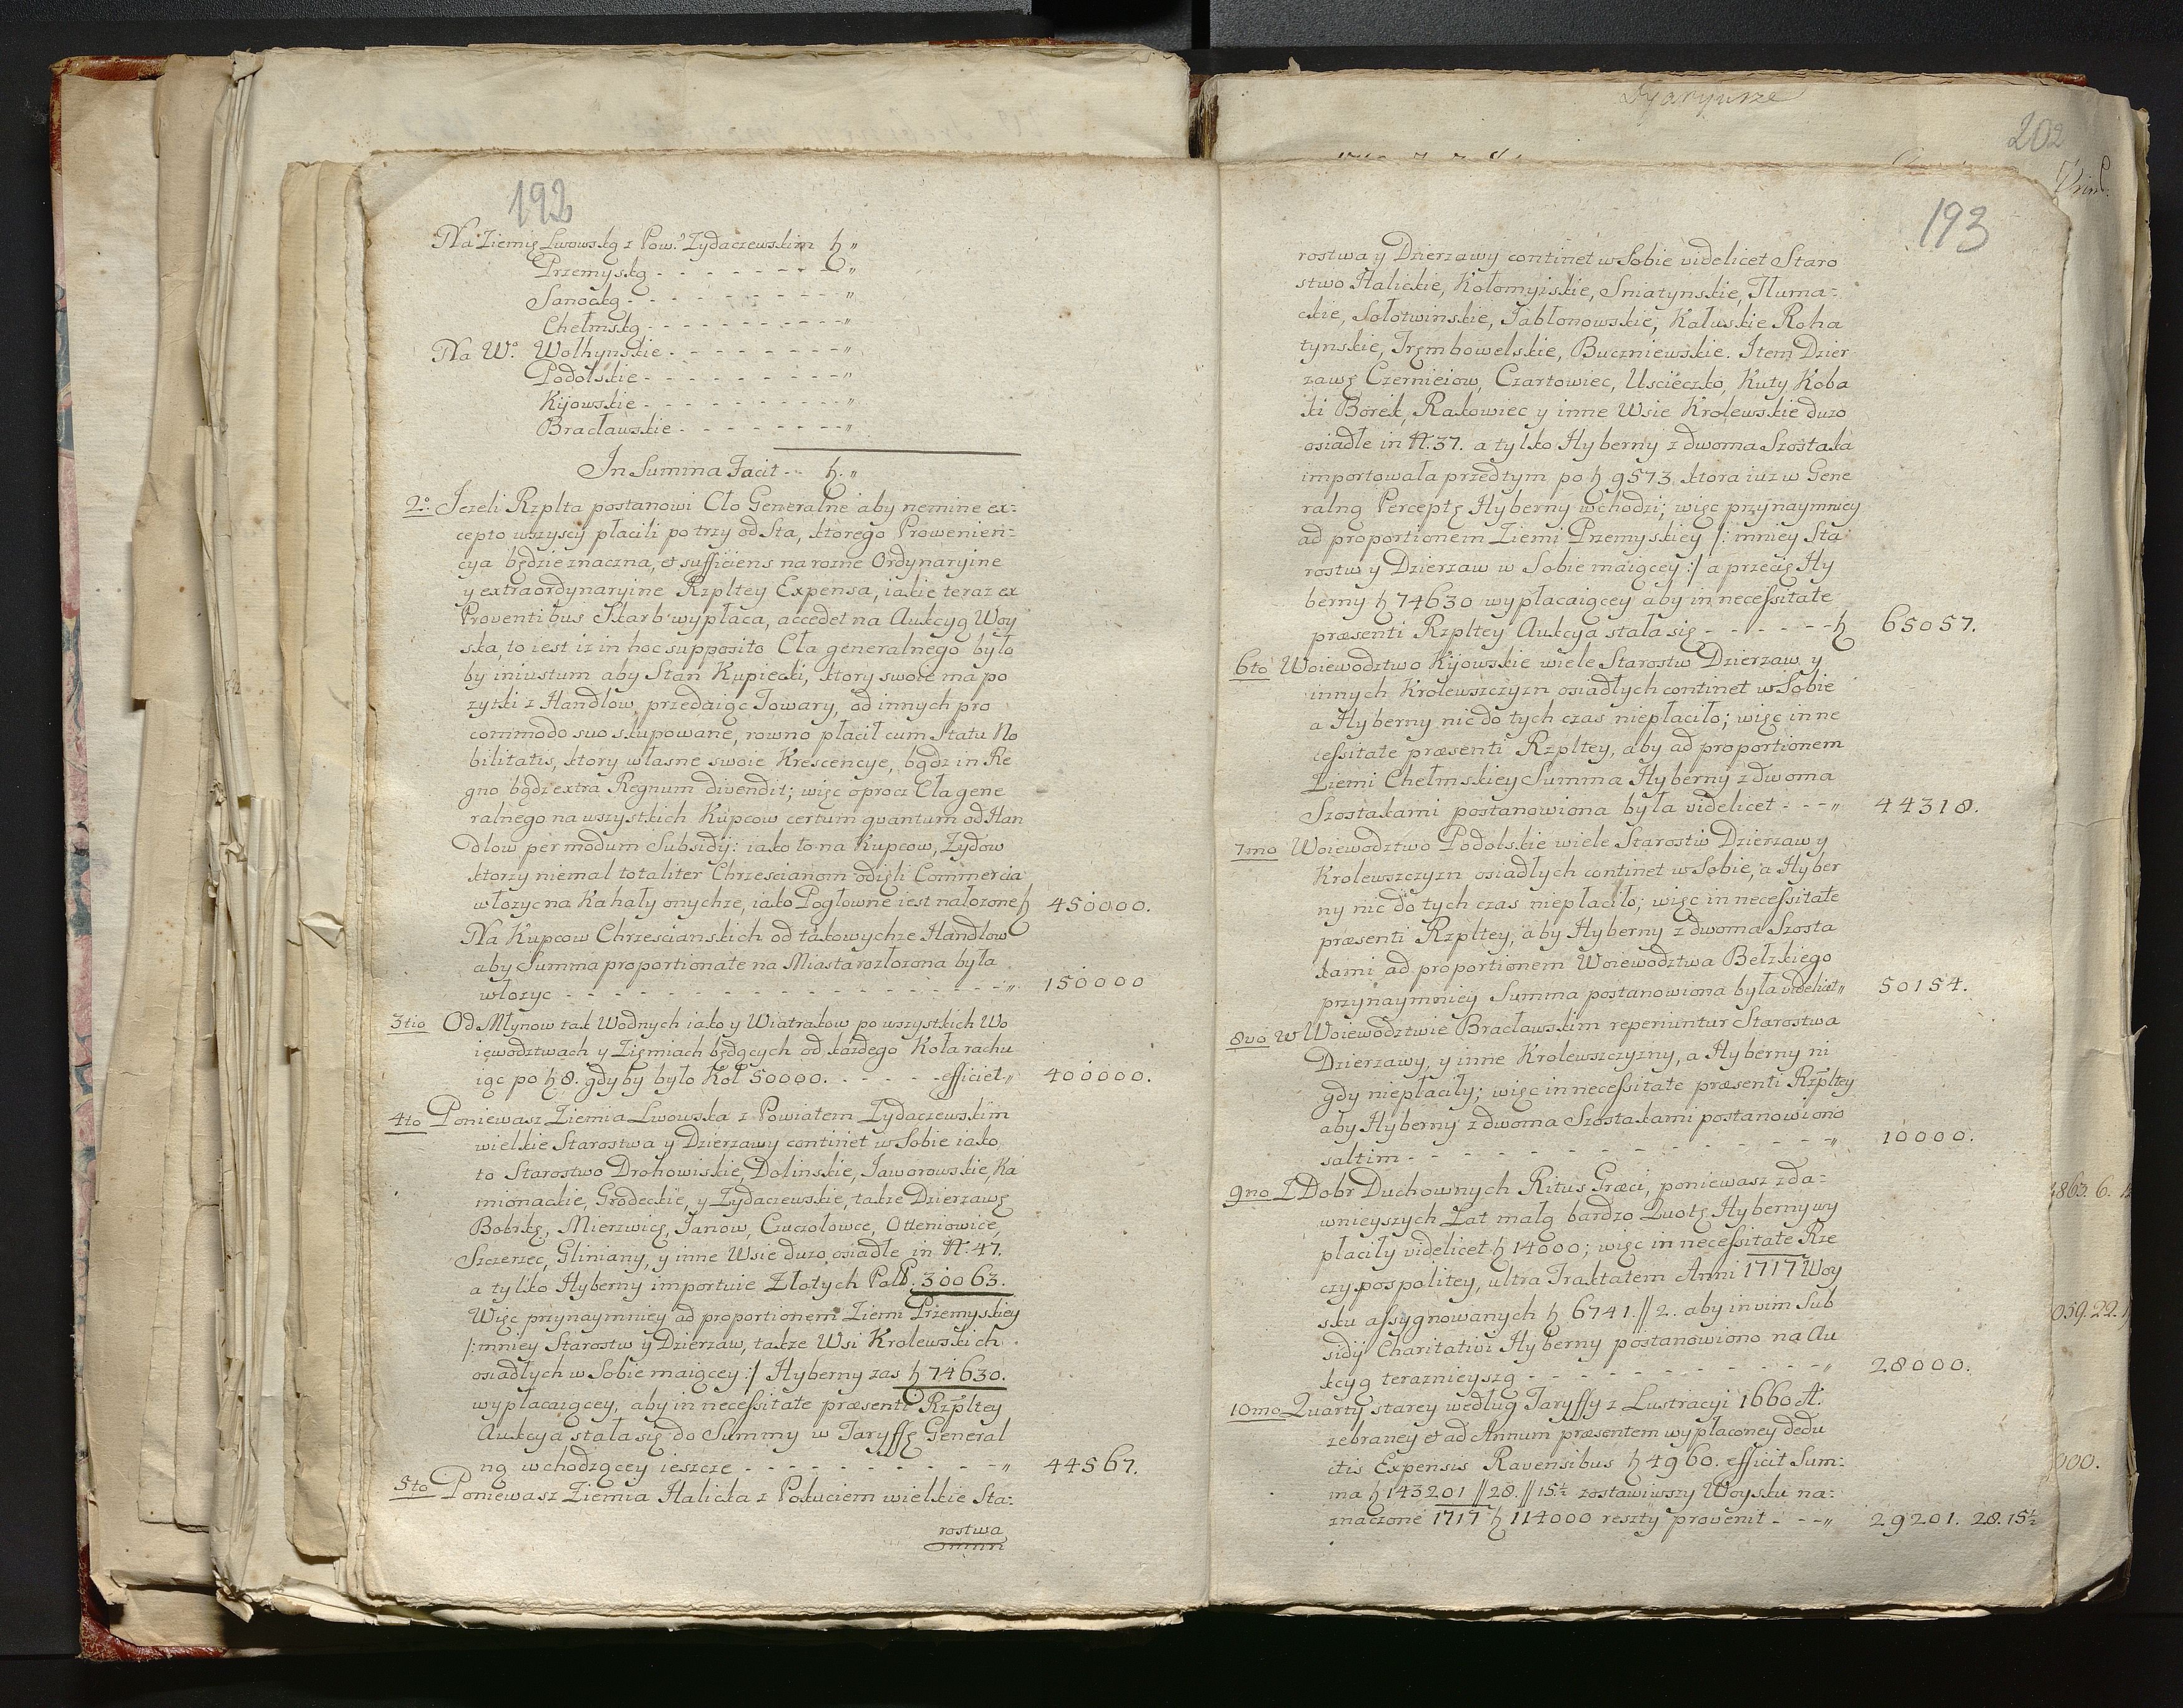 192
Na Ziemię Lwowską z Pow.º Zydaczewskim ꝟ „
Przemyską - - - - - - - - „
Sanocką - - - - - - - - - „
Chełmską - - - - - - - - - „
Na W.º Wolhynskie - - - - - - - - „
Podolskie - - - - - - - - „
Kijowskie - - - - - - - - „
Bracławskie - - - - - - - „
In Summa Facit - - „
2º Jezeli Rzplta postanowi Cło Generalne aby nemine ex-
cepto wszyscy płacili po trzy od Sta, ktorego Prowenien-
cya będzie znaczna, et sufficiens na rozne Ordynaryine
y extraordynaryine Rzpltey Expensa, iakie teraz ex
Proventibus Skarb wypłaca, accedet na Aukcyą Woy
ska, to iest iz in hoc supposito Cła generalnego było
by iniustum aby Stan Kupiecki, ktory swoie ma po
zytki z Handlow, przedaiąc Towary, od innych pro
commodo suo skupowane, rowno płacił cum Statu No
bilitatis, ktory własne swoie Krescencye, bądz in Re
gno bądz extra Regnum divendit; więc oprocz Cła gene
ralnego na wszystkich Kupcow certum quantum od Han
dlow per modum Subsidij: iako to na Kupcow, Zydow
ktorzy niemal totaliter Chrzescianom odięli Commercia
włozyc na Kahały onychze, iako Pogłowne iest nałozone 450000.
Na Kupcow Chrzescianskich od takowychze Handlow
aby Summa proportionate na Miasta rozłozona była
włozyc - - - - - - - - - - - - - - „ 150000
3tio Od Młynow tak Wodnych iako y Wiatrakow po wszystkich Wo
iewodztwach y Ziemiach będących od kazdego Koła rachu
iąc po 8. gdyby było Koł 50000. - - - - - efficiet „ 400000.
4to Poniewasz Ziemia Lwowska z Powiatem Zydaczewskim
wielkie Starostwa y Dzierzawy continet w Sobie iako
to Starostwo Drohowiskie, Dolinskie, Jaworowskie, Ka
mionackie, Grodeckie, y Zydaczewskie, takze Dzierzawę
Bobrkę, Mierzwicę, Janow, Czuczołowce, Otteniowice,
Szczerzec, Gliniany, y inne Wsie duzo osiadłe in N. 47.
a tylko Hyberny importuie Złotych Poll. 30063.
Więc przynaymniey ad proportionem Ziemi Przemyskiey
/: mniey Starostw y Dzierzaw, takze Wsi Krolewskich
osiadłych w Sobie maiącey :/ Hyberny zas 74630.
wypłacaiącey, aby in necessitate præsenti Rzpltey
Aukcya stała się do Summy w Taryffę General
ną wchodzącey ieszcze - - - - - - - - - „ 44567.
5to Poniewasz Ziemia Halicka z Pokuciem wielkie Sta-
rostwa
Dyaryusze
202
193
rostwa y Dzierzawy continet w Sobie videlicet Staro
stwo Halickie, Kołomyiskie, Sniatynskie, Tłuma-
ckie, Sołotwinskie, Jabłonowskie, Kałuskie Roha
tynskie, Trembowelskie, Buczniewskie. Item Dzier
zawę Czernieiow, Czartowiec, Uscieczko, Kuty Koba
ki Borek, Rakowiec y inne Wsie Krolewskie duzo
osiadłe in N. 37. a tylko Hyberny z dwoma Szostaka
importowała przedtym po 9573. ktora iuz w Gene
ralną Perceptę Hyberny wchodzi; więc przynaymniey
ad proportionem Ziemi Przemyskiey /: mniey Sta
rostw y Dzierzaw w Sobie maiącey :/ a przecię Hy
berny 74630 wypłacaiącey aby in necessitate
præsenti Rzpltey Aukcya stała się - - - - - - 65057.
6to Woiewodztwo Kijowskie wiele Starostw Dzierzaw y
innych Krolewszczyzn osiadłych continet w Sobie
a Hyberny nic do tych czas niepłaciło; więc in ne
cessitate præsenti Rzpltey, aby ad proportionem
Ziemi Chełmskiey Summa Hyberny z dwoma
Szostakami postanowiona była videlicet - - - „ 44318.
7mo Woiewodztwo Podolskie wiele Starostw Dzierzaw y
Krolewszczyzn osiadłych continet w Sobie, a Hyber
ny nic do tych czas niepłaciło; więc in necessitate
præsenti Rzpltey, aby Hyberny z dwoma Szosta
kami ad proportionem Woiewodztwa Bełzkiego
przynaymniey Summa postanowiona była videlicet „ 50154.
8vo W Woiewodztwie Bracławskim reperiuntur Starostwa
Dzierzawy, y inne Krolewszczyzny, a Hyberny ni
gdy niepłaciły; więc in necessitate præsenti Rzpltey
aby Hyberny z dwoma Szostakami postanowiono
saltim - - - - - - - - - - - - - - „ 10000.
9no Z Dobr Duchownych Ritus Græci, poniewasz zda-
wnieyszych Lat małą bardzo Quotę Hyberny wy
płaciły videlicet 14000; więc in necessitate Rze
czypospolitey, ultra Traktatem Anni 1717 Woy
sku assygnowanych 6741.//2. aby in vim Sub
sidij Charitativi Hyberny postanowiono na Au
kcyą teraznieyszą - - - - - - - - - - „ 28000.
10mo Quarty starey według Taryffy z Lustracyi 1660 A.
zebraney et ad Annum præsentem wypłaconey dedu
ctis Expensis Ravensibus 4960. efficit Sum-
ma 143201//28.//15½ zostawiwszy Woysku na-
znaczone 1717 114000 reszty provenit - - - „ 29201. 28. 15½
863. 6.
059. 22.
000.